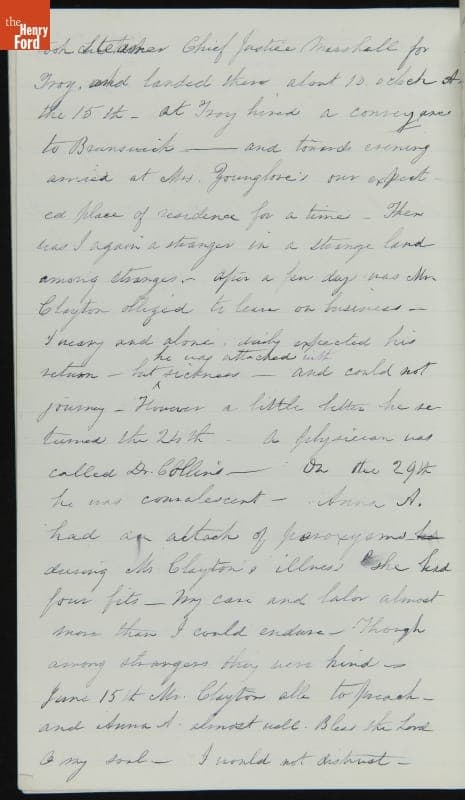 the Henry Ford
took steamer Chief Justice Marshall for
Troy, and landed there about 10 oclock Am
the 15th - At Troy hired a conveyance
to Brunswick — and towards evening
arrived at Mrs. Younglove's our expect-
ed place of residence for a time - Then
was I again a stranger in a strange land
among strangers - After a few days was Mr.
Clayton obliged to leave on business -
I weary and alone, daily expected his
he was attacked with
return - but sickness - and could not
journey - However a little better he re
turned the 24th - A physician was
called Dr. Collins — On the 29th
he was convalescent - Anna A.
had an attack of paroxysms
during Mr Clayton's illness she had
four fits - My care and labor almost
more than I could endure - Though
among strangers they were kind -
June 15th Mr. Clayton able to preach -
and Anna A. almost well. Bless the Lord
O my soul - I would not distrust -